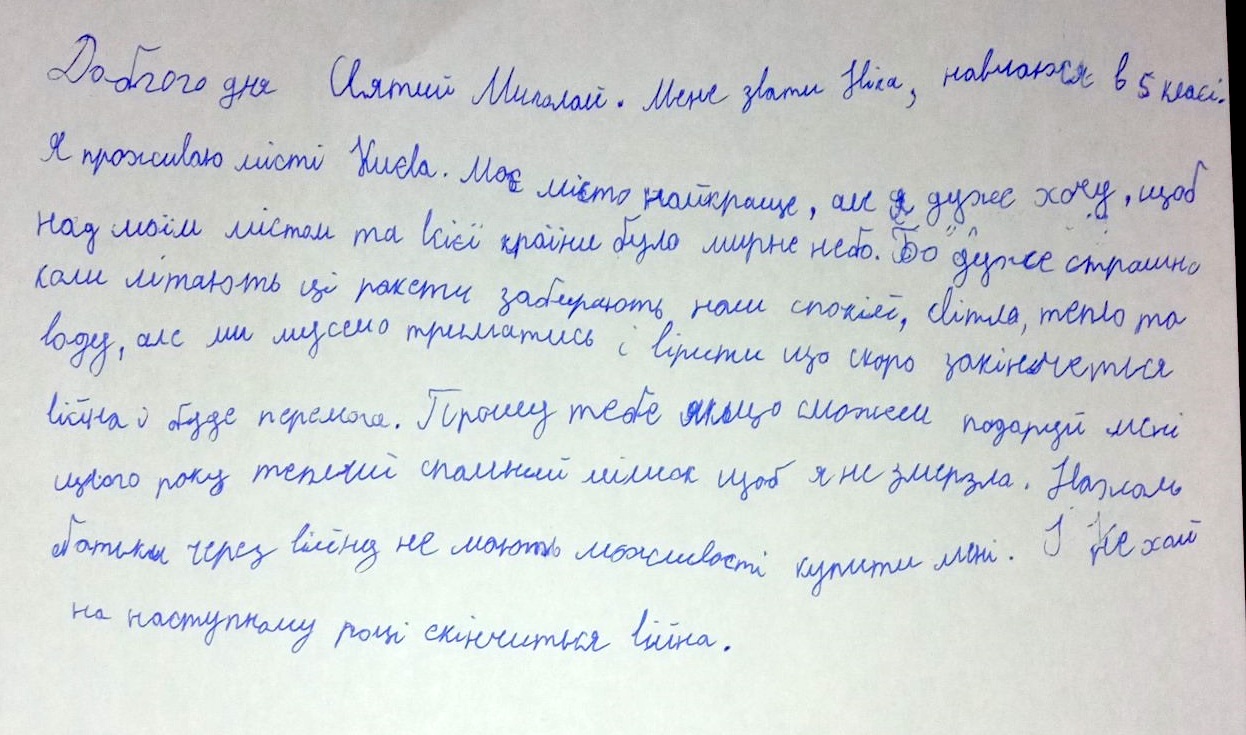 Доброго дня Святий Миколай. Мене звати Ніка, навчаюся в 5 класі.
Я проживаю місті Києва. Моє місто найкраще, але я дуже хочу, щоб
над моїм містом та всієї країни було мирне небо. Бо дуже страшно
коли літають ці ракети забирають наш спокій, світла, тепло та
воду, але ми мусемо триматись і вірити що скоро закінчеться
війна і буде перемога. Прошу тебе якщо зможеш подаруй мені
цього року теплий спальний мішок щоб я не змерзла. Нажаль
батьки через війну не мають можливості купити мені. І Нехай
на наступному році скінчиться війна.